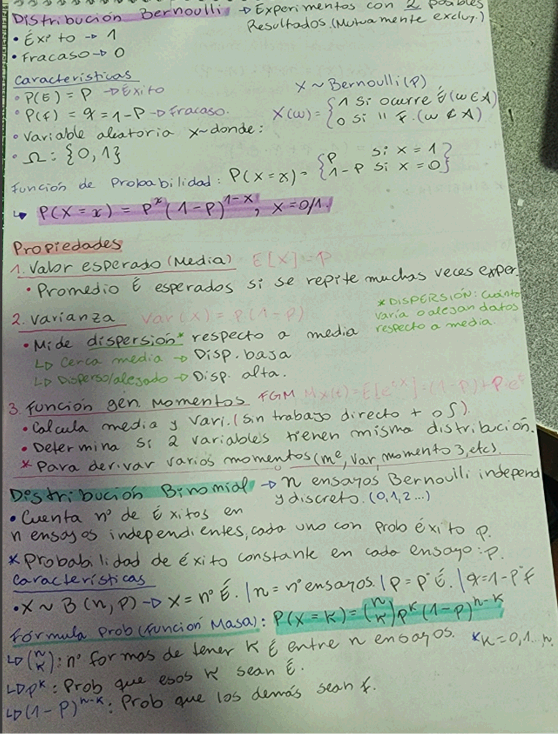 Distribución Bernoulli → Experimentos con 2 posibles
Resultados. (Mutuamente excluy.)
• Éxito → 1
• Fracaso → 0
Características
• P(E) = P → Éxito
• P(F) = q = 1-P → Fracaso.
• Variable aleatoria X~donde:
• Ω: {0,1}
X ~ Bernoulli(P)
X(ω) = {1 si ocurre É (ω ∈ A)
0 si " F. (ω ∉ A)
Función de Probabilidad: P(X=x) = {P si x = 1
1-P si x = 0}
↳ P(X=x) = P^x (1-P)^1-x, x=0/1.
Propiedades
1. Valor esperado (Media) E[X]=P
• Promedio É esperados si se repite muchas veces exper.
2. Varianza Var(X) = P(1-P)
• Mide dispersión* respecto a media
↳ Cerca media → Disp. baja
↳ Disperso/alejado → Disp. alta.
*DISPERSIÓN: Cuánto
varía o alejan datos
respecto a media.
3. Función gen Momentos FGM Mx(t)=E[e^tX]=(1-P)+P·e^t
• Calcula media y Vari. (sin trabajo directo + o ∫).
• Determina si 2 variables tienen misma distribución.
* Para derivar varios momentos (mᵉ, Var, momento 3, etc).
Distribución Binomial → n ensayos Bernoulli independ
y discreto. (0,1,2...)
• Cuenta nº de Éxitos en
n ensayos independientes, cada uno con prob éxito p.
* Probabilidad de éxito constante en cada ensayo: p.
Características
• X ~ B(n,p) → X = nº É. | n = nº ensayos. | p = pº É. | q = 1-pº F
Fórmula Prob (Función Masa): P(X=K) = (n K) p^K (1-p)^n-K
*K=0,1...n.
↳ (n K): nº formas de tener K É entre n ensayos.
↳ p^K: Prob que esos K sean É.
↳ (1-p)^n-K: Prob que los demás sean f.